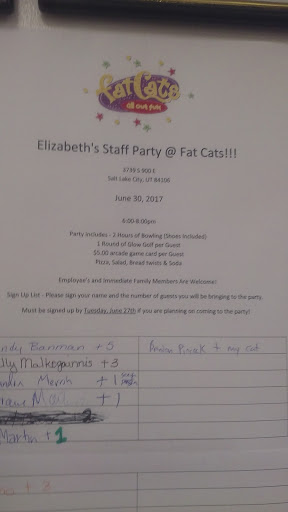 Fat Cats
all out fun
Elizabeth's Staff Party @ Fat Cats!!!
3739 S 900 E
Salt Lake City, UT 84106
June 30, 2017
6:00-8:00pm
Party Includes - 2 Hours of Bowling (Shoes Included)
1 Round of Glow Golf per Guest
$5.00 arcade game card per Guest
Pizza, Salad, Bread twists & Soda
Employee's and Immediate Family Members Are Welcome!
Sign Up List - Please sign your name and the number of guests you will be bringing to the party.
Must be signed up by Tuesday, June 27th if you are planning on coming to the party!
ndy Banman + 5
+ my cat
lly Malkogannis + 3
Merrih + 1
+ 1
Martin + 1
+ 3